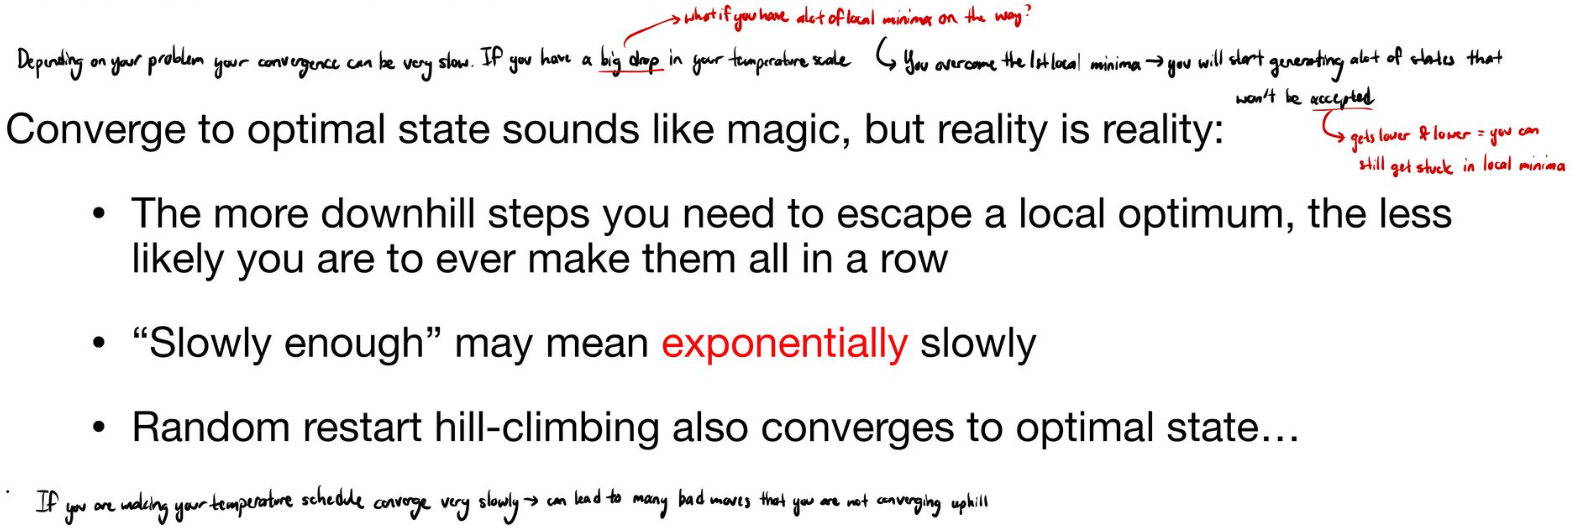 what if you have alot of local minima on the way?
Depending on your problem your convergence can be very slow. If you have a big drop in your temperature scale
You overcome the 1st local minima → you will start generating alot of states that
won't be accepted
gets lower & lower = you can
still get stuck in local minima
Converge to optimal state sounds like magic, but reality is reality:
• The more downhill steps you need to escape a local optimum, the less
likely you are to ever make them all in a row
• “Slowly enough” may mean exponentially slowly
• Random restart hill-climbing also converges to optimal state…
If you are making your temperature schedule converge very slowly → can lead to many bad moves that you are not converging uphill